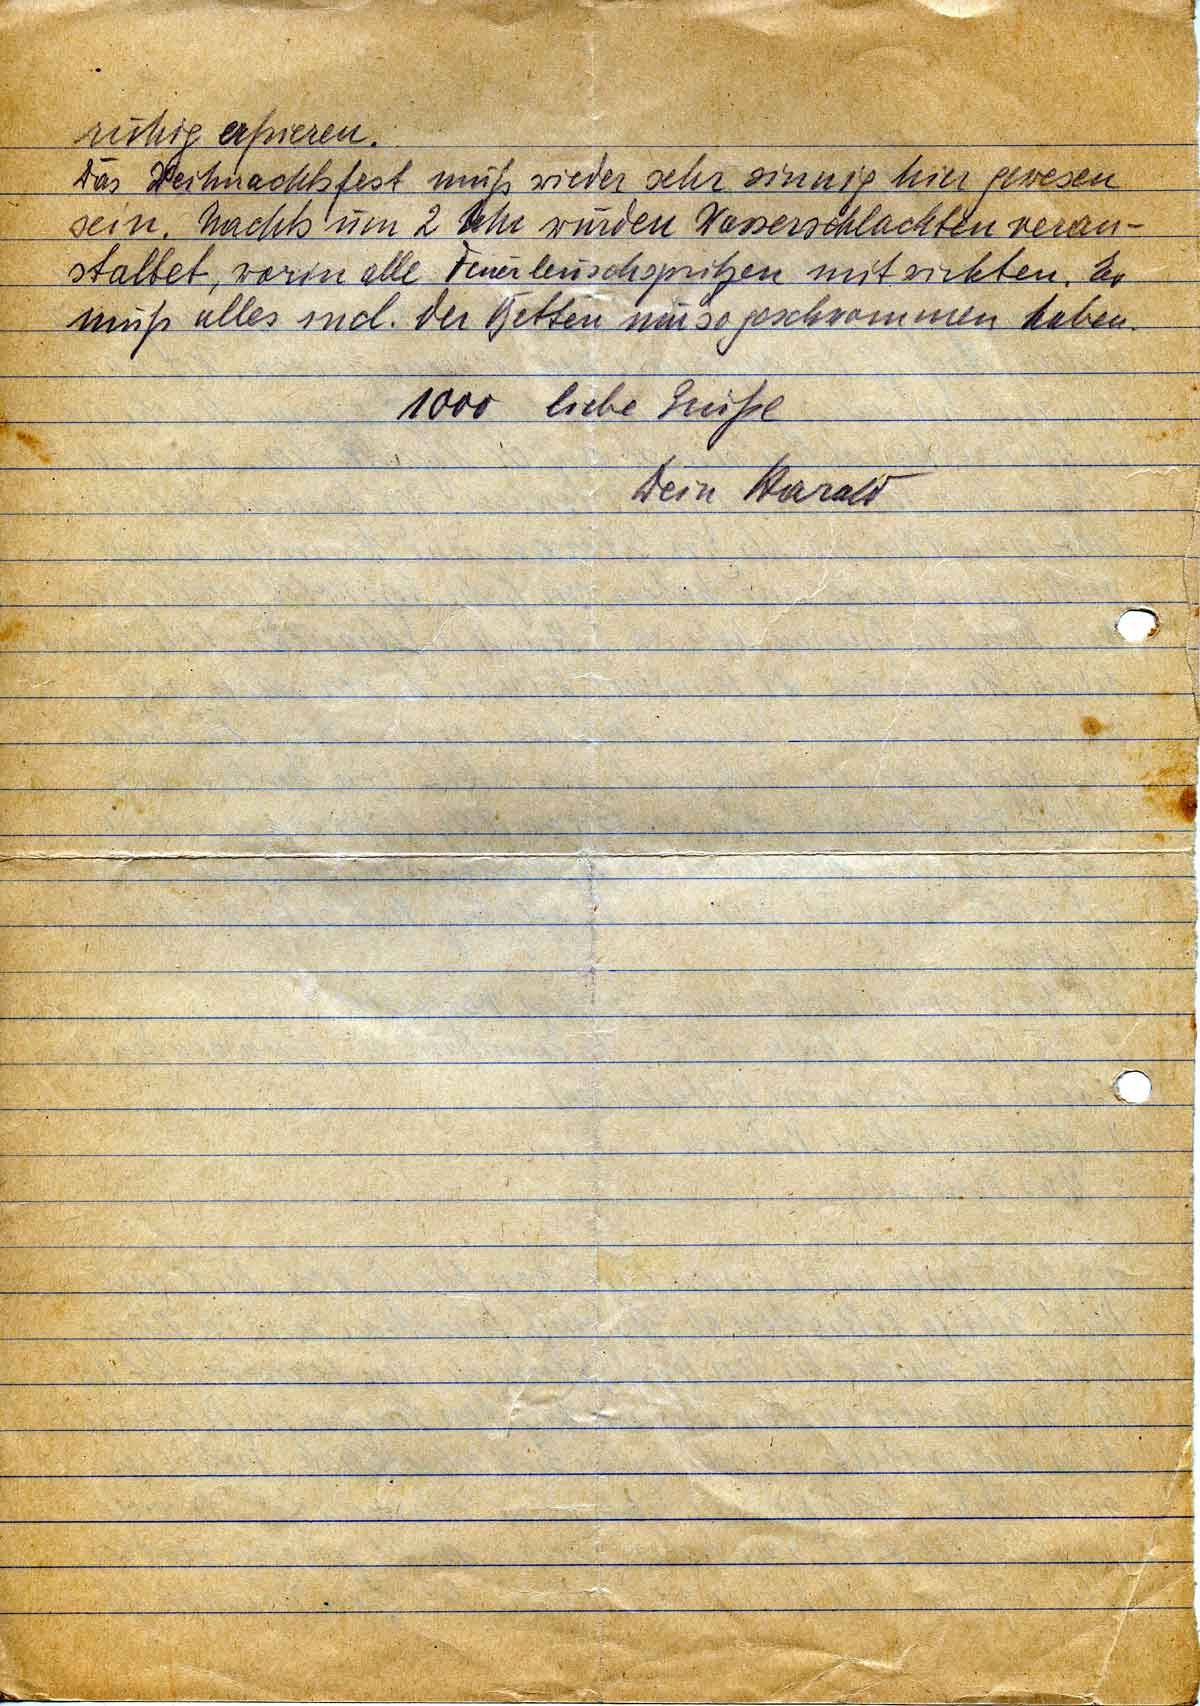 ruhig erfrieren.
Das Weihnachtsfest muß wieder sehr sinnig hier gewesen
sein. Nachts um 2 Uhr wurden Wasserschlachten veran-
staltet, worin alle Feuerlöschspritzen mitwirkten. Es
muß alles incl. der Betten nur so geschwommen haben.
1000 liebe Grüße
Dein Harald